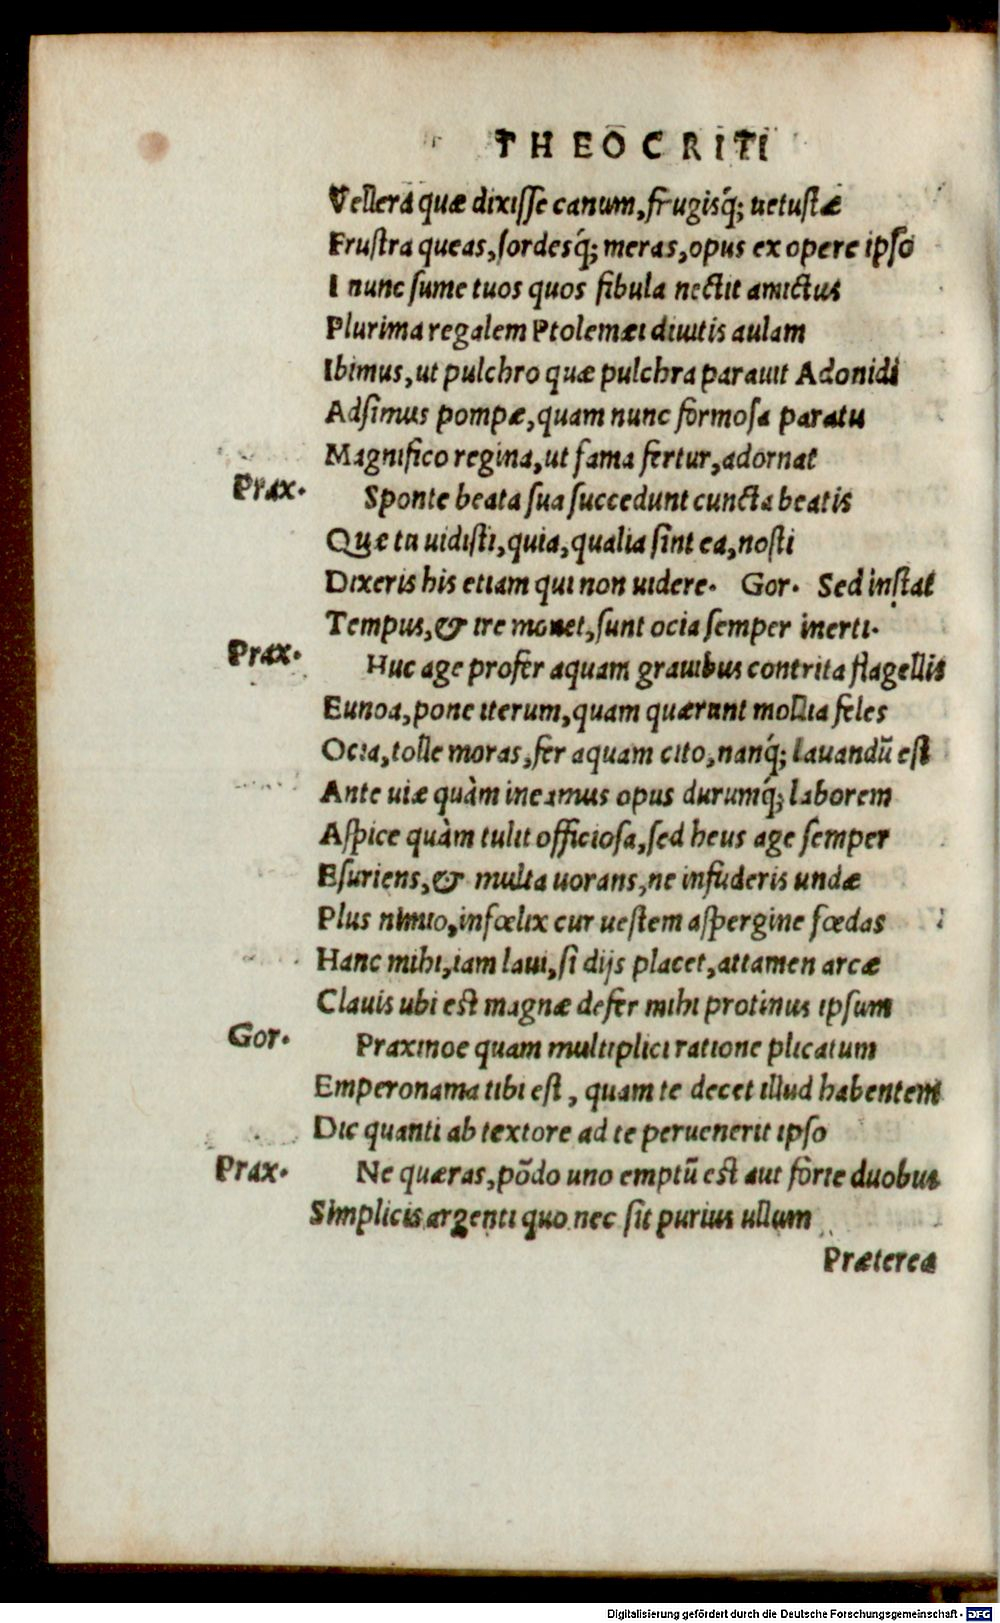 THEOCRITI
Vellera quæ dixisse canum, frugisq́; uetustæ
Frustra queas, sordesq́; meras, opus ex opere ipso
I nunc sume tuos quos fibula nectit amictus
Plurima regalem Ptolemæi diuitis aulam
Ibimus, ut pulchro quæ pulchra parauit Adonidi
Adsimus pompæ, quam nunc formosa paratu
Magnifico regina, ut fama fertur, adornat
Prax. Sponte beata sua succedunt cuncta beatis
Quæ tu uidisti, quia, qualia sint ea, nosti
Dixeris his etiam qui non uidere. Gor. Sed instat
Tempus, & ire monet, sunt ocia semper inerti.
Prax. Huc age profer aquam grauibus contrita flagellis
Eunoa, pone iterum, quam quærunt mollia feles
Ocia, tolle moras, fer aquam cito, nanq́; lauandũ est
Ante uiæ quàm ineamus opus durumq́; laborem
Aspice quàm tulit officiosa, sed heus age semper
Esuriens, & multa uorans, ne infuderis undæ
Plus nimio, infœlix cur uestem aspergine fœdas
Hanc mihi, iam laui, si dijs placet, attamen arcæ
Clauis ubi est magnæ defer mihi protinus ipsum
Gor. Praxinoe quam multiplici ratione plicatum
Emperonama tibi est, quam te decet illud habentem
Dic quanti ab textore ad te peruenerit ipso
Prax. Ne quæras, põdo uno emptũ est aut forte duobus
Simplicis argenti quo nec sit purius ullum
Præterea
Digitalisierung gefördert durch die Deutsche Forschungsgemeinschaft - DFG